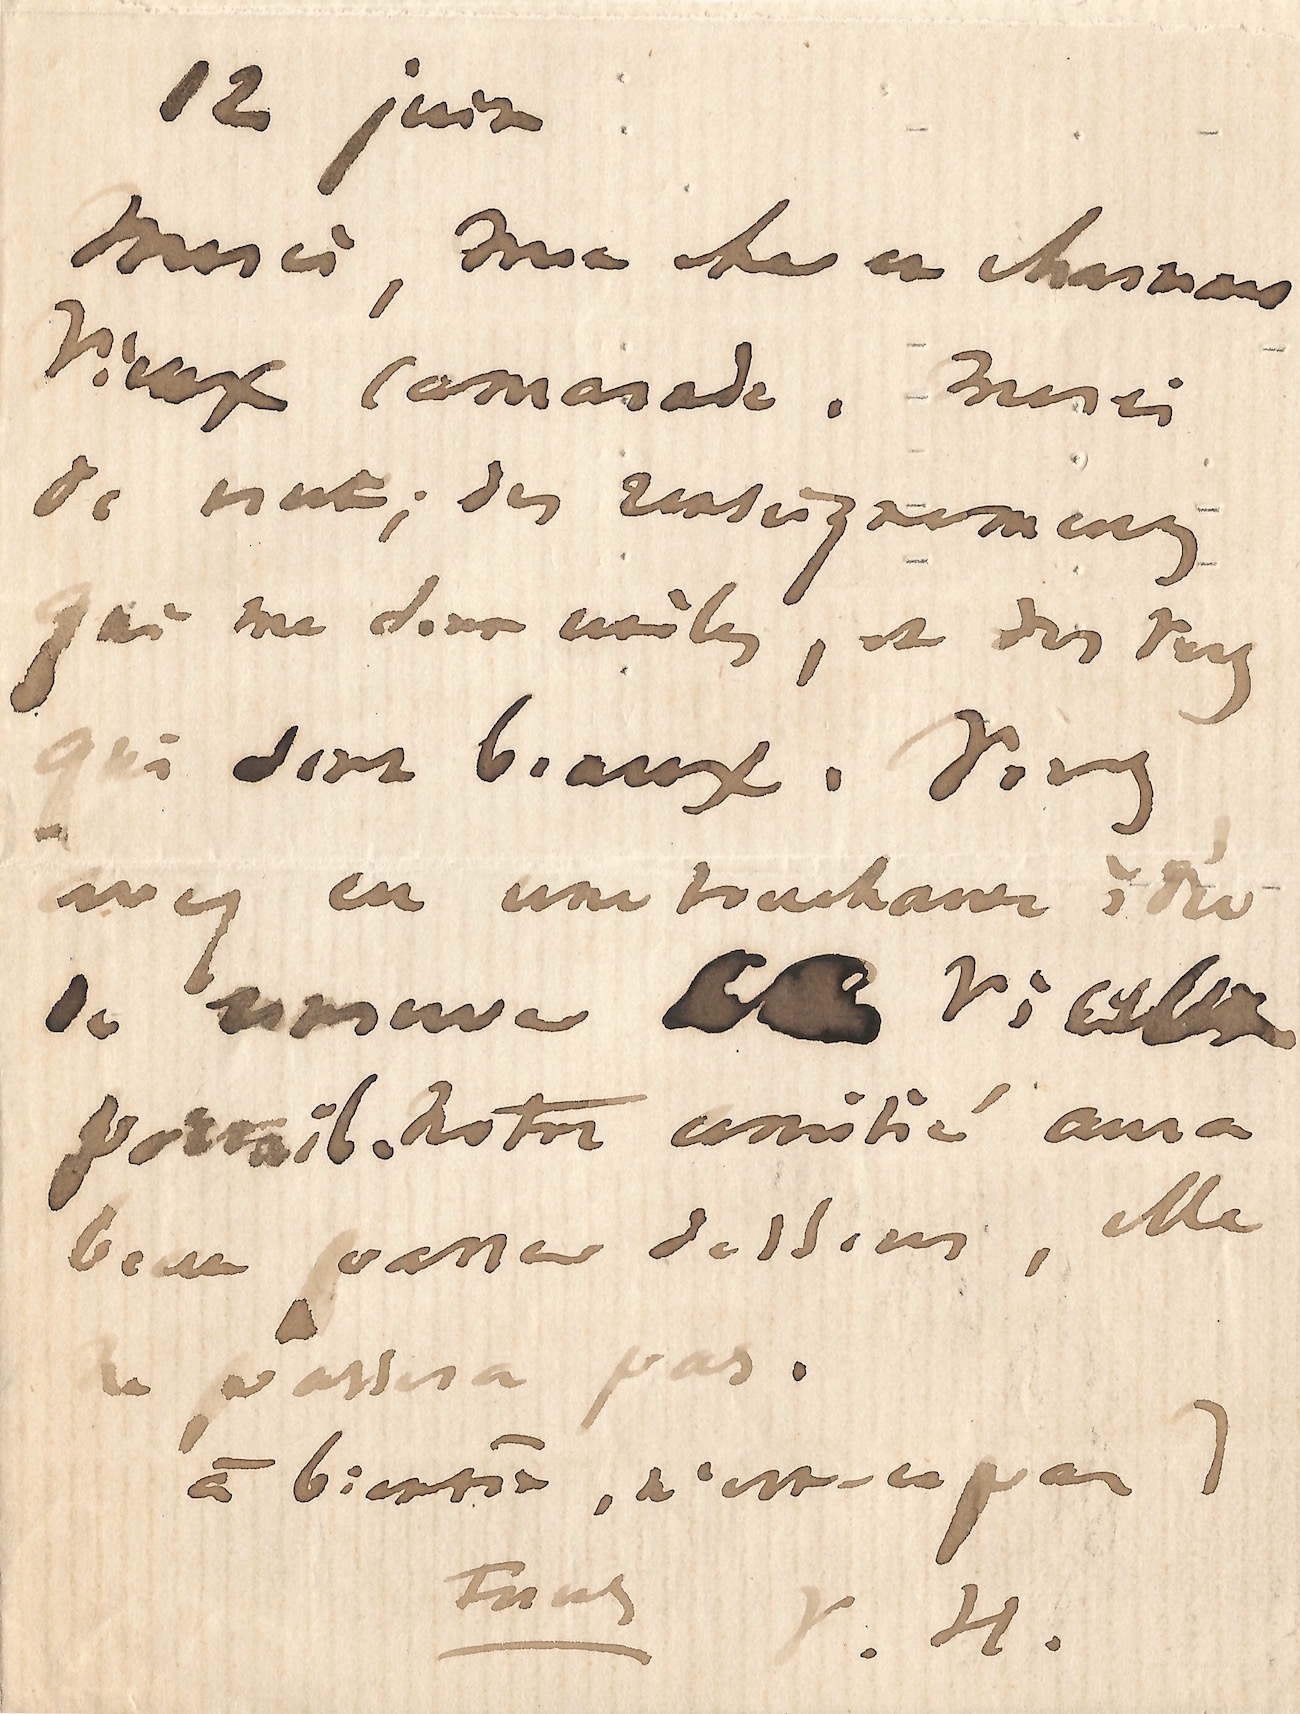 12 juin
Merci, mon cher et charmant
vieux camarade. Merci
de tout; des renseignements
qui me sont utiles, et des vers
qui sont beaux. Vous
avez eu une touchante idée
de
Notre amitié aura
beau passer dessus, elle
ne passera pas.
à bientôt, n'est-ce pas ?
Tuus V. H.